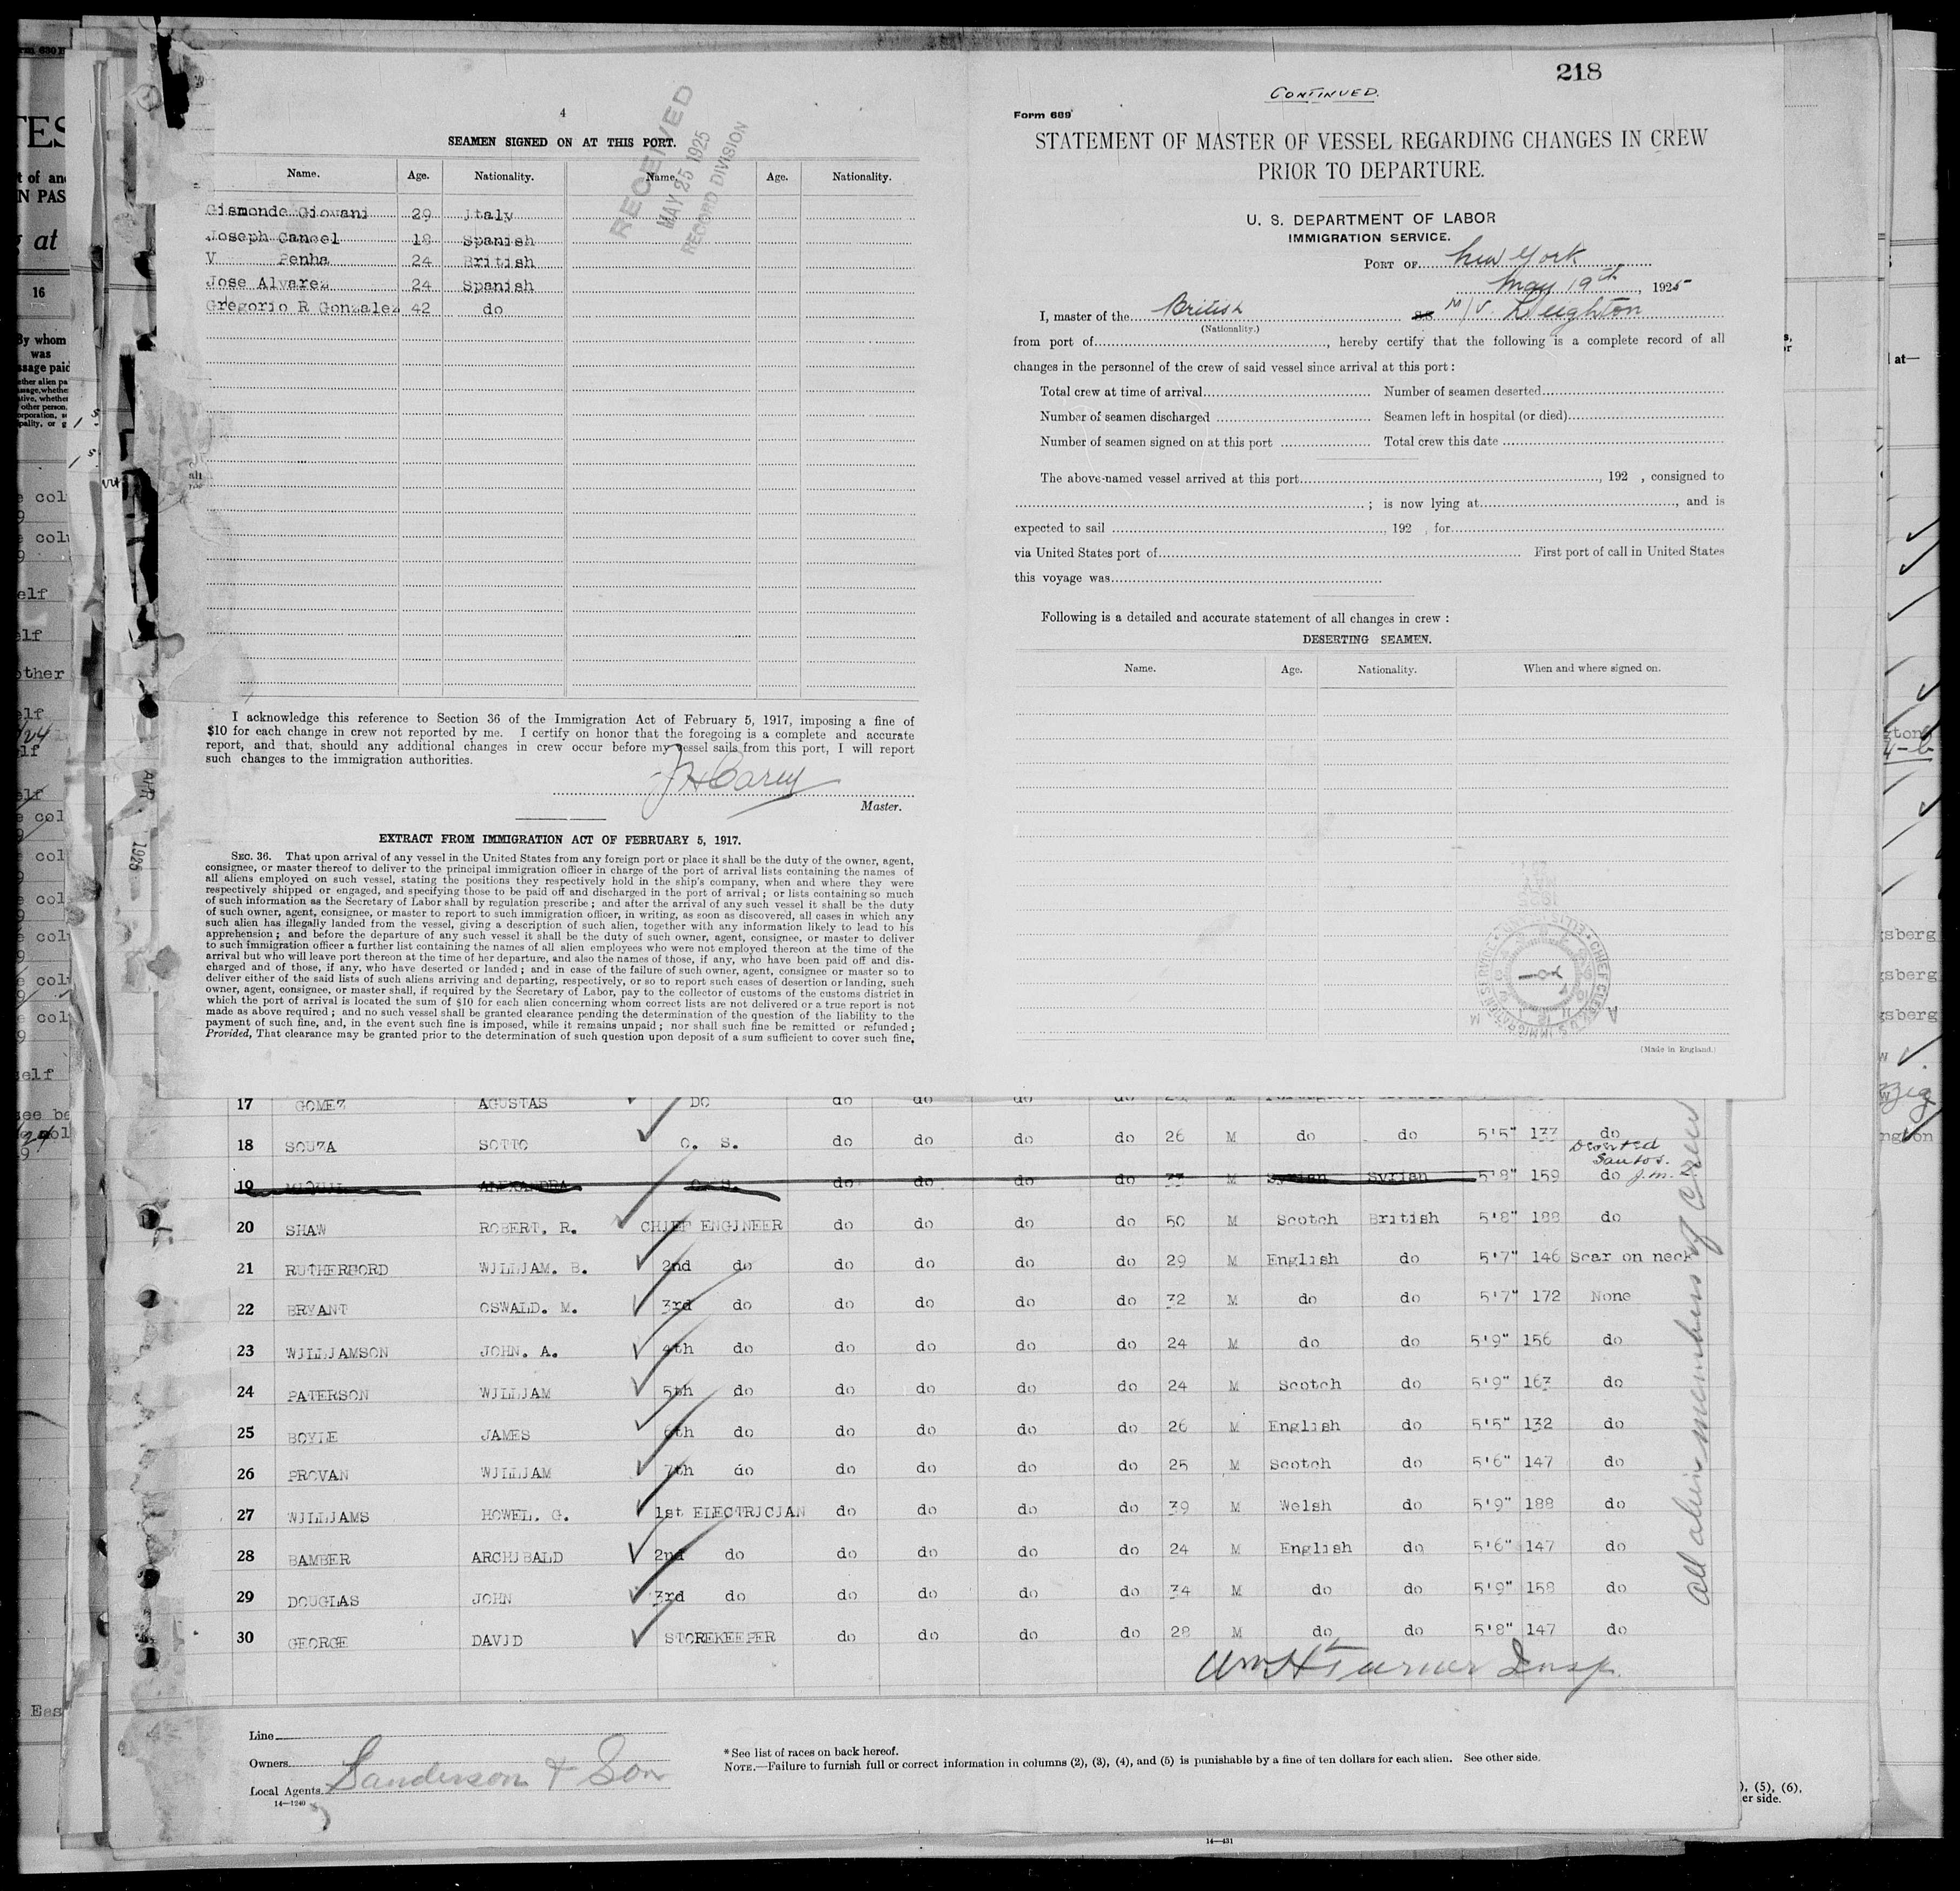 218
CONTINUED.
4
SEAMEN SIGNED ON AT THIS PORT.
Name. Age. Nationality. Name. Age. Nationality.
RECEIVED
MAY 25 1925
RECORD DIVISION
Gismonde Giovani 29 Italy
Joseph Canoel 18 Spanish
V Penha 24 British
Jose Alvarez 24 Spanish
Gregorio R Gonzalez 42 do
I acknowledge this reference to Section 36 of the Immigration Act of February 5, 1917, imposing a fine of
$10 for each change in crew not reported by me. I certify on honor that the foregoing is a complete and accurate
report, and that, should any additional changes in crew occur before my vessel sails from this port, I will report
such changes to the immigration authorities.
J H Carey
Master.
EXTRACT FROM IMMIGRATION ACT OF FEBRUARY 5, 1917.
SEC. 36. That upon arrival of any vessel in the United States from any foreign port or place it shall be the duty of the owner, agent,
consignee, or master thereof to deliver to the principal immigration officer in charge of the port of arrival lists containing the names of
all aliens employed on such vessel, stating the positions they respectively hold in the ship's company, when and where they were
respectively shipped or engaged, and specifying those to be paid off and discharged in the port of arrival; or lists containing so much
of such information as the Secretary of Labor shall by regulation prescribe; and after the arrival of any such vessel it shall be the duty
of such owner, agent, consignee, or master to report to such immigration officer, in writing, as soon as discovered, all cases in which any
such alien has illegally landed from the vessel, giving a description of such alien, together with any information likely to lead to his
apprehension; and before the departure of any such vessel it shall be the duty of such owner, agent, consignee, or master to deliver
to such immigration officer a further list containing the names of all alien employees who were not employed thereon at the time of the
arrival but who will leave port thereon at the time of her departure, and also the names of those, if any, who have been paid off and dis-
charged and of those, if any, who have deserted or landed; and in case of the failure of such owner, agent, consignee or master so to
deliver either of the said lists of such aliens arriving and departing, respectively, or so to report such cases of desertion or landing, such
owner, agent, consignee, or master shall, if required by the Secretary of Labor, pay to the collector of customs of the customs district in
which the port of arrival is located the sum of $10 for each alien concerning whom correct lists are not delivered or a true report is not
made as above required; and no such vessel shall be granted clearance pending the determination of the question of the liability to the
payment of such fine, and, in the event such fine is imposed, while it remains unpaid; nor shall such fine be remitted or refunded;
Provided, That clearance may be granted prior to the determination of such question upon deposit of a sum sufficient to cover such fine,
Form 689
STATEMENT OF MASTER OF VESSEL REGARDING CHANGES IN CREW
PRIOR TO DEPARTURE.
U. S. DEPARTMENT OF LABOR
IMMIGRATION SERVICE.
PORT OF New York
May 19th, 1925
I, master of the British SS M/V. Leighton
(Nationality.)
from port of, hereby certify that the following is a complete record of all
changes in the personnel of the crew of said vessel since arrival at this port:
Total crew at time of arrival Number of seamen deserted
Number of seamen discharged Seamen left in hospital (or died)
Number of seamen signed on at this port Total crew this date
The above-named vessel arrived at this port, 192 , consigned to
; is now lying at, and is
expected to sail, 192 , for
via United States port of First port of call in United States
this voyage was
Following is a detailed and accurate statement of all changes in crew:
DESERTING SEAMEN.
Name. Age. Nationality. When and where signed on.
(Made in England.)
17 GOMEZ AGUSTAS DO do do do do
18 SOUZA SOTTO O. S. do do do do 26 M do do 5'5" 133 do
Deserted
Santos.
19 ALEXANDRA O.S. do do do do 33 M Syrian Syrian 5'8" 159 do J.M.
20 SHAW ROBERT. R. CHIEF ENGINEER do do do do 50 M Scotch British 5'8" 188 do
21 RUTHERFORD WILLIAM. B. 2nd do do do do do 29 M English do 5'7" 146 Scar on neck
22 BRYANT OSWALD. M. 3rd do do do do do 32 M do do 5'7" 172 None
23 WILLIAMSON JOHN. A. 4th do do do do do 24 M do do 5'9" 156 do
24 PATERSON WILLIAM 5th do do do do do 24 M Scotch do 5'9" 163 do
25 BOYLE JAMES 6th do do do do do 26 M English do 5'5" 132 do
26 PROVAN WILLIAM 7th do do do do do 25 M Scotch do 5'6" 147 do
27 WILLIAMS HOWEL. G. 1st ELECTRICIAN do do do do 39 M Welsh do 5'9" 188 do
28 BAMBER ARCHIBALD 2nd do do do do do 24 M English do 5'6" 147 do
29 DOUGLAS JOHN 3rd do do do do do 34 M do do 5'9" 158 do
30 GEORGE DAVID STOREKEEPER do do do do 28 M do do 5'8" 147 do
All alien members of Crew
Wm H Turner Insp.
Line
Owners
Local Agents Sanderson & Son
14—1240
*See list of races on back hereof.
NOTE.—Failure to furnish full or correct information in columns (2), (3), (4), and (5) is punishable by a fine of ten dollars for each alien. See other side.
14—431